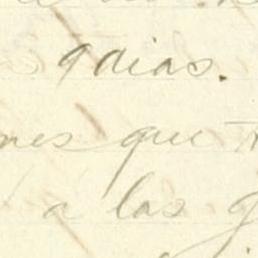 9 dias.
nes que
a las